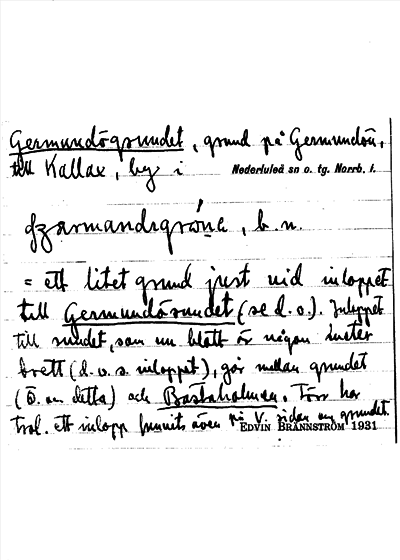 Germundögrundet, grund på Germundön,
till Kallax, by i Nederluleå sn o. tg. Norrb. l.
b. n.
= ett litet grund just vid inloppet
till Germundösundet (se d. o.). Inloppet
till sundet, som nu blott är någon meter
brett (d. v. s. inloppet), går mellan grundet
(ö. om detta) och Bastaholmen. Förr har
trol. ett inlopp funnits även på V. sidan om grundet.
EDVIN BRÄNNSTRÖM 1931